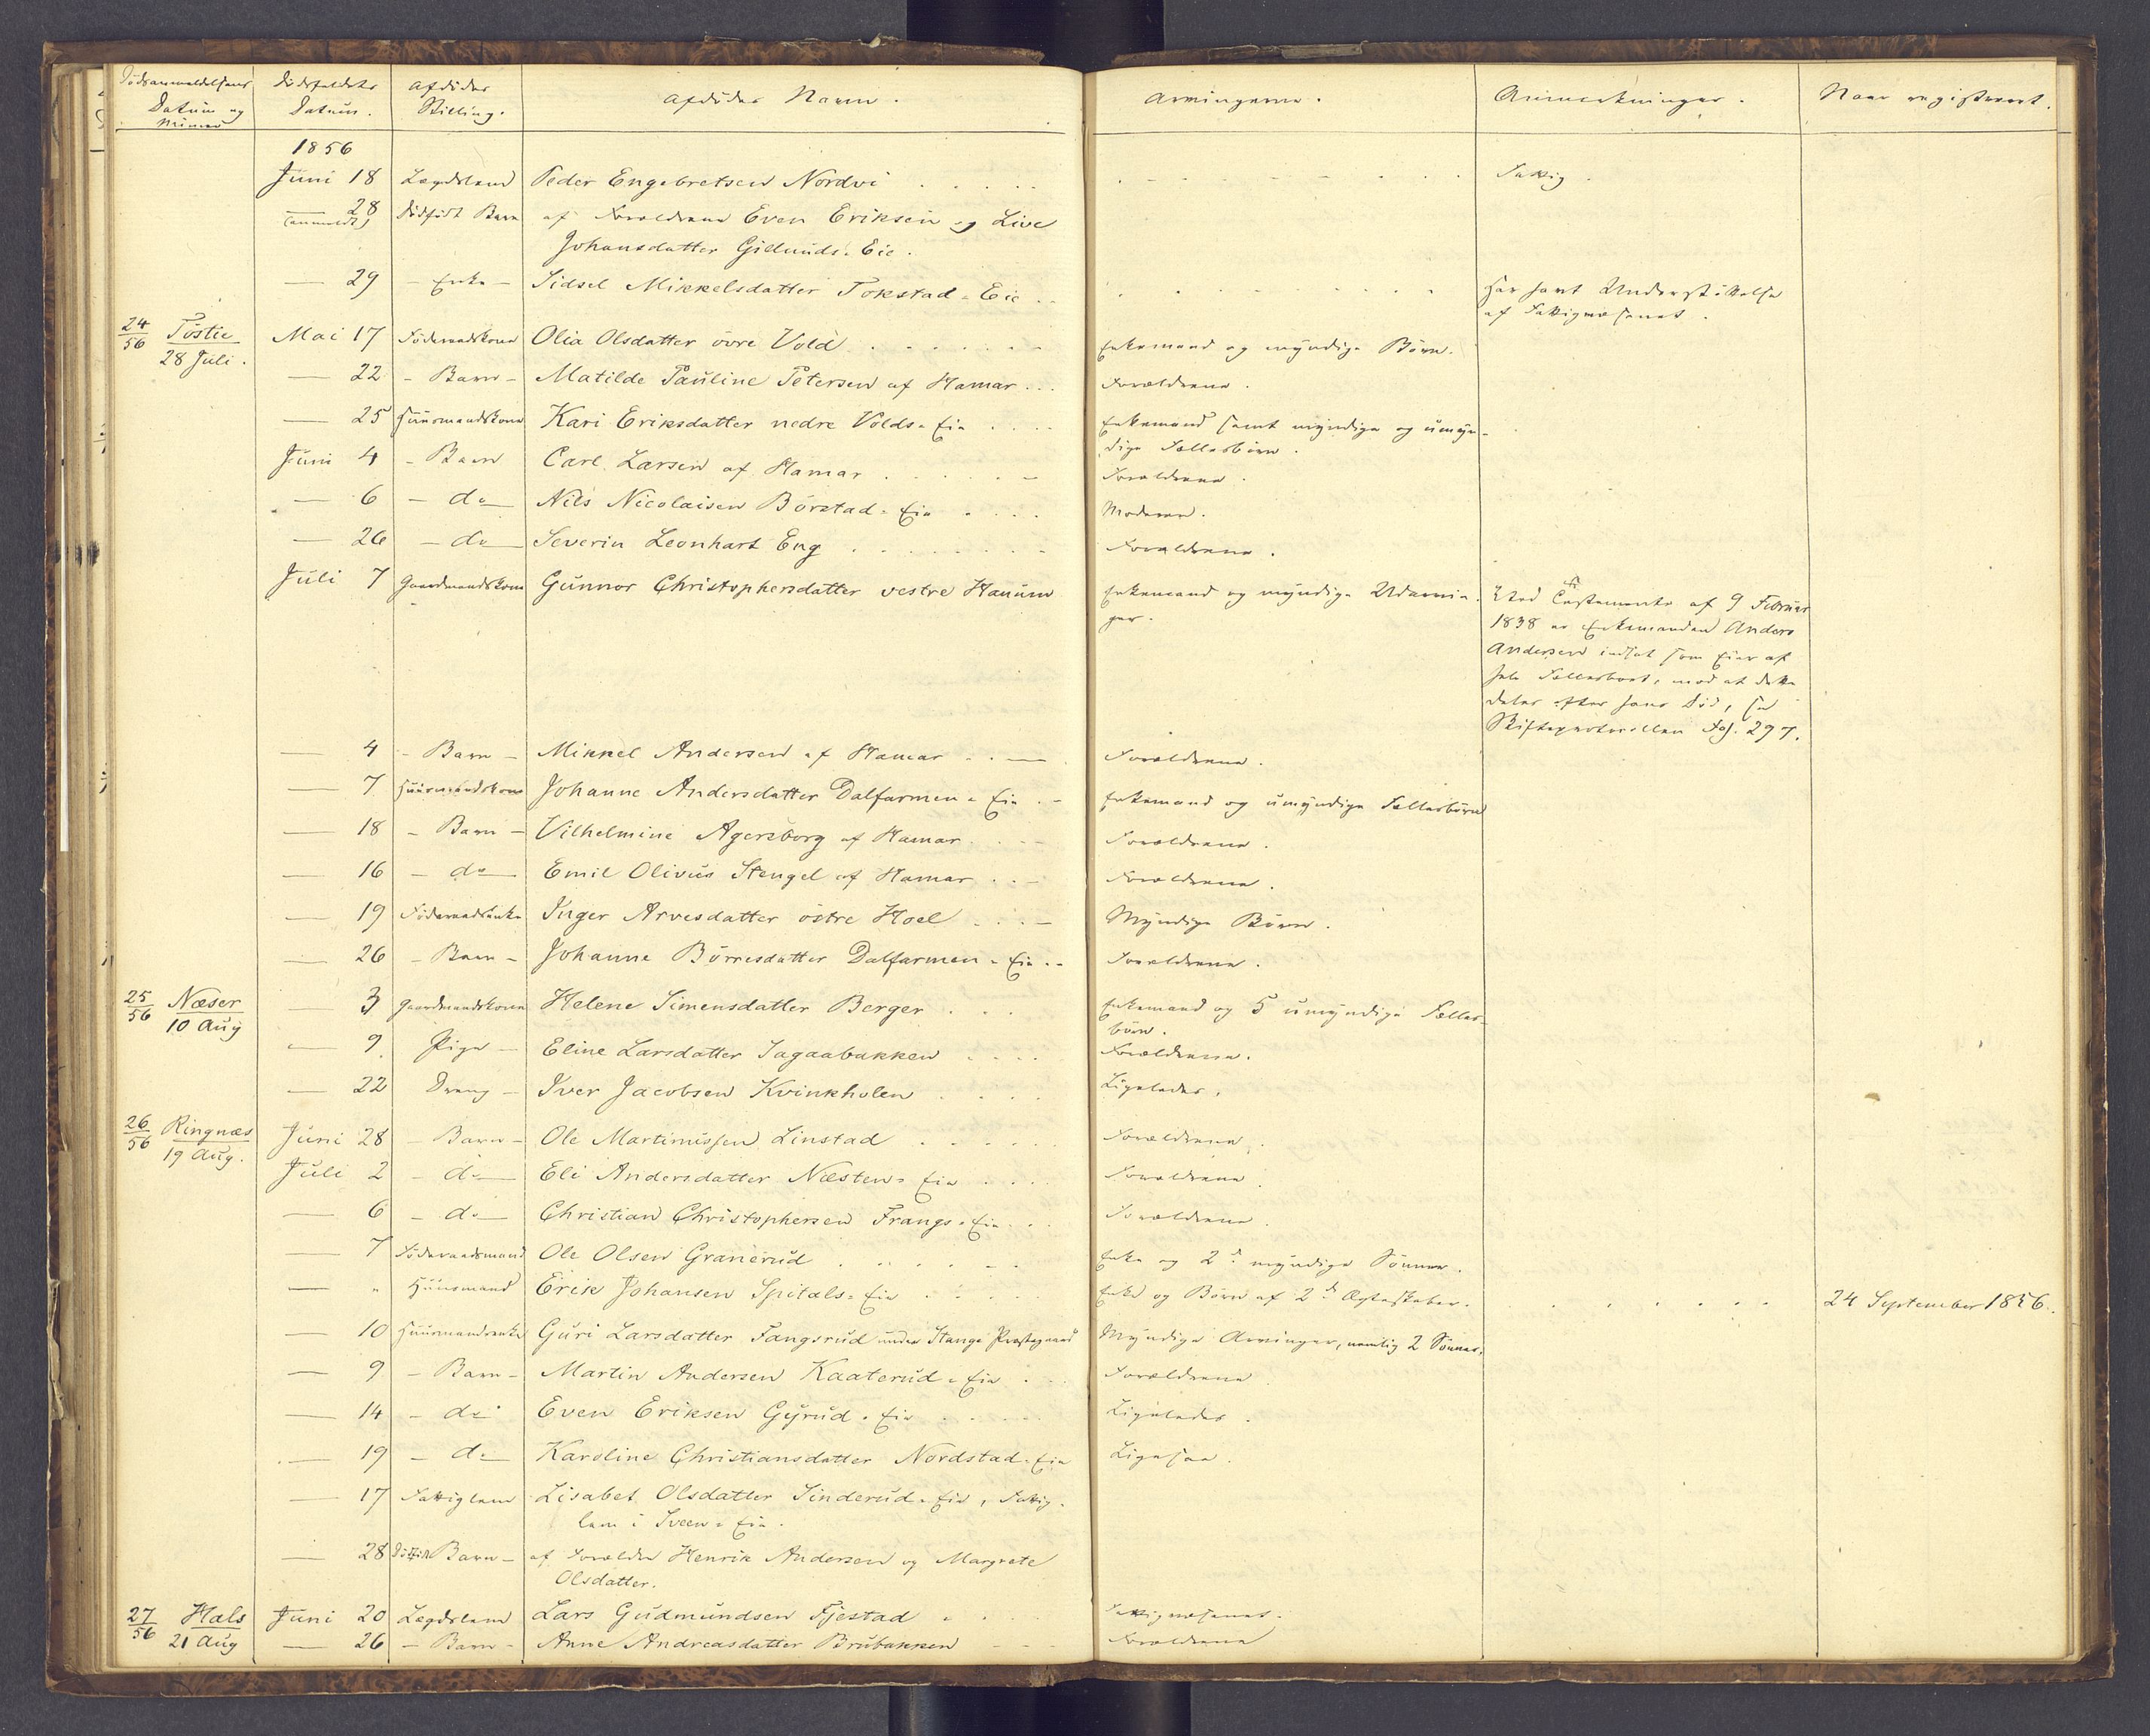 Dödsanmeldelsens Datum og Numer | Dödsfaldets Datum. | Afdödes Stilling. | Afdödes Navn. | Arvingerne. | Anmerkninger. | Naar registreret.
1856
Juni 18 | Lægdslem | Peder Engebretsen Nordvi | Fattig.
— 28 (anmeldt) | Dödfödt Barn | af Forældrene Even Eriksen og Live
Johansdatter Gillunds-Eie.
— 29 | Enke | Sidsel Mikkelsdatter Tokstad-Eie | Har havt Understöttelse
af Fattigvæsenet.
24/56 Töstie 28 Juli. | Mai 17 | Föderaadskone | Olia Olsdatter övre Vold | Enkemand og myndige Börn.
— 22 | Barn | Matilde Pauline Petersen af Hamar | Forældrene.
— 25 | Huusmandskone | Kari Eriksdatter nedre Volds-Eie | Enkemand samt myndige og umyn-
dige Fællesbörn.
Juni 4 | Barn | Carl Larsen af Hamar | Forældrene.
— 6 | do | Nils Nicolaisen Börstad-Eie | Moderen.
— 26 | do | Severin Leonhart Eng | Forældrene.
Juli 7 | Gaardmandskone | Gunnor Christophersdatter vestre Hanum | Enkemand og myndige Udarvin-
ger. | Ved Testamente af 9 Februar
1838 er Enkemanden Anders
Andersen indsat som Eier af
hele Fællesboet, mod at dette
deles efter hans Död, se
Skifteprotocollen Fol. 297.
— 4 | Barn | Mikkel Andersen af Hamar | Forældrene.
— 7 | Huusmandskone | Johanne Andersdatter Dalfarmen-Eie | Enkemand og umyndige Fællesbörn
— 18 | Barn | Vilhelmine Agersborg af Hamar | Forældrene.
— 16 | do | Emil Olivus Stengel af Hamar | Forældrene.
— 19 | Föderaadsenke | Inger Arvesdatter östre Hoel | Myndige Börn.
— 26 | Barn | Johanne Börresdatter Dalfarmen-Eie | Forældrene.
25/56 Næser 10 Aug | — 3 | Gaardmandskone | Helene Simensdatter Berger | Enkemand og 5 umyndige Fælles-
börn.
— 9 | Pige | Eline Larsdatter Sagaabakken | Forældrene.
— 22 | Dreng | Iver Jacobsen Kvinkholen | Ligeledes.
26/56 Ringnæs 19 Aug. | Juni 28 | Barn | Ole Martinussen Linstad | Forældrene.
Juli 2 | do | Eli Andersdatter Næsten-Eie | Forældrene.
— 6 | do | Christian Christophersen Frangs-Eie | Forældrene.
— 7 | Föderaadsmand | Ole Olsen Granerud | Enke og 2de myndige Sönner.
— " | Huusmand | Erik Johansen Spitals-Eie | Enke og Börn af 2de Ægteskaber. | 24 September 1856.
— 10 | Huusmandsenke | Guri Larsdatter Fangsrud under Stange Præstegaard | Myndige Arvinger, nemlig 2 Sönner.
— 9 | Barn | Martin Andersen Kaaterud-Eie | Forældrene
— 14 | do | Even Eriksen Gyrud-Eie | Ligeledes.
— 19 | do | Karoline Christiansdatter Nordstad-Eie | Ligesaa.
— 17 | Fattiglem | Lisabet Olsdatter Sinderud-Eie, Fattig-
lem i Sveen-Eie.
— 28 | Dödfödt Barn | af Forældre Henrik Andersen og Margrete
Olsdatter.
27/56 Hals 21 Aug | Juni 20 | Lægdslem | Lars Gudmundsen Fjestad | Fattigvæsenet.
— 26 | Barn | Anne Andreasdatter Brubakken | Forældrene